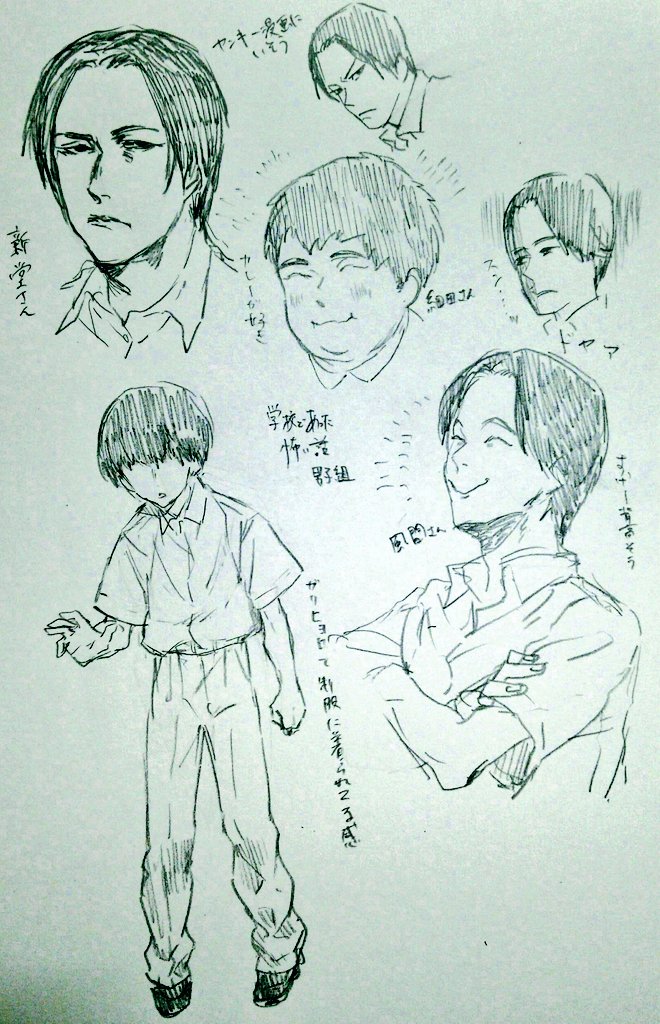 ヤンキー漫画に
いそう
新堂さん
カレーが好き
細田さん
スン…ッ
ドヤァ
学校であった
怖い話
男子組
風間さん
すげー背高そう
ガリヒョロで制服に着られてる感